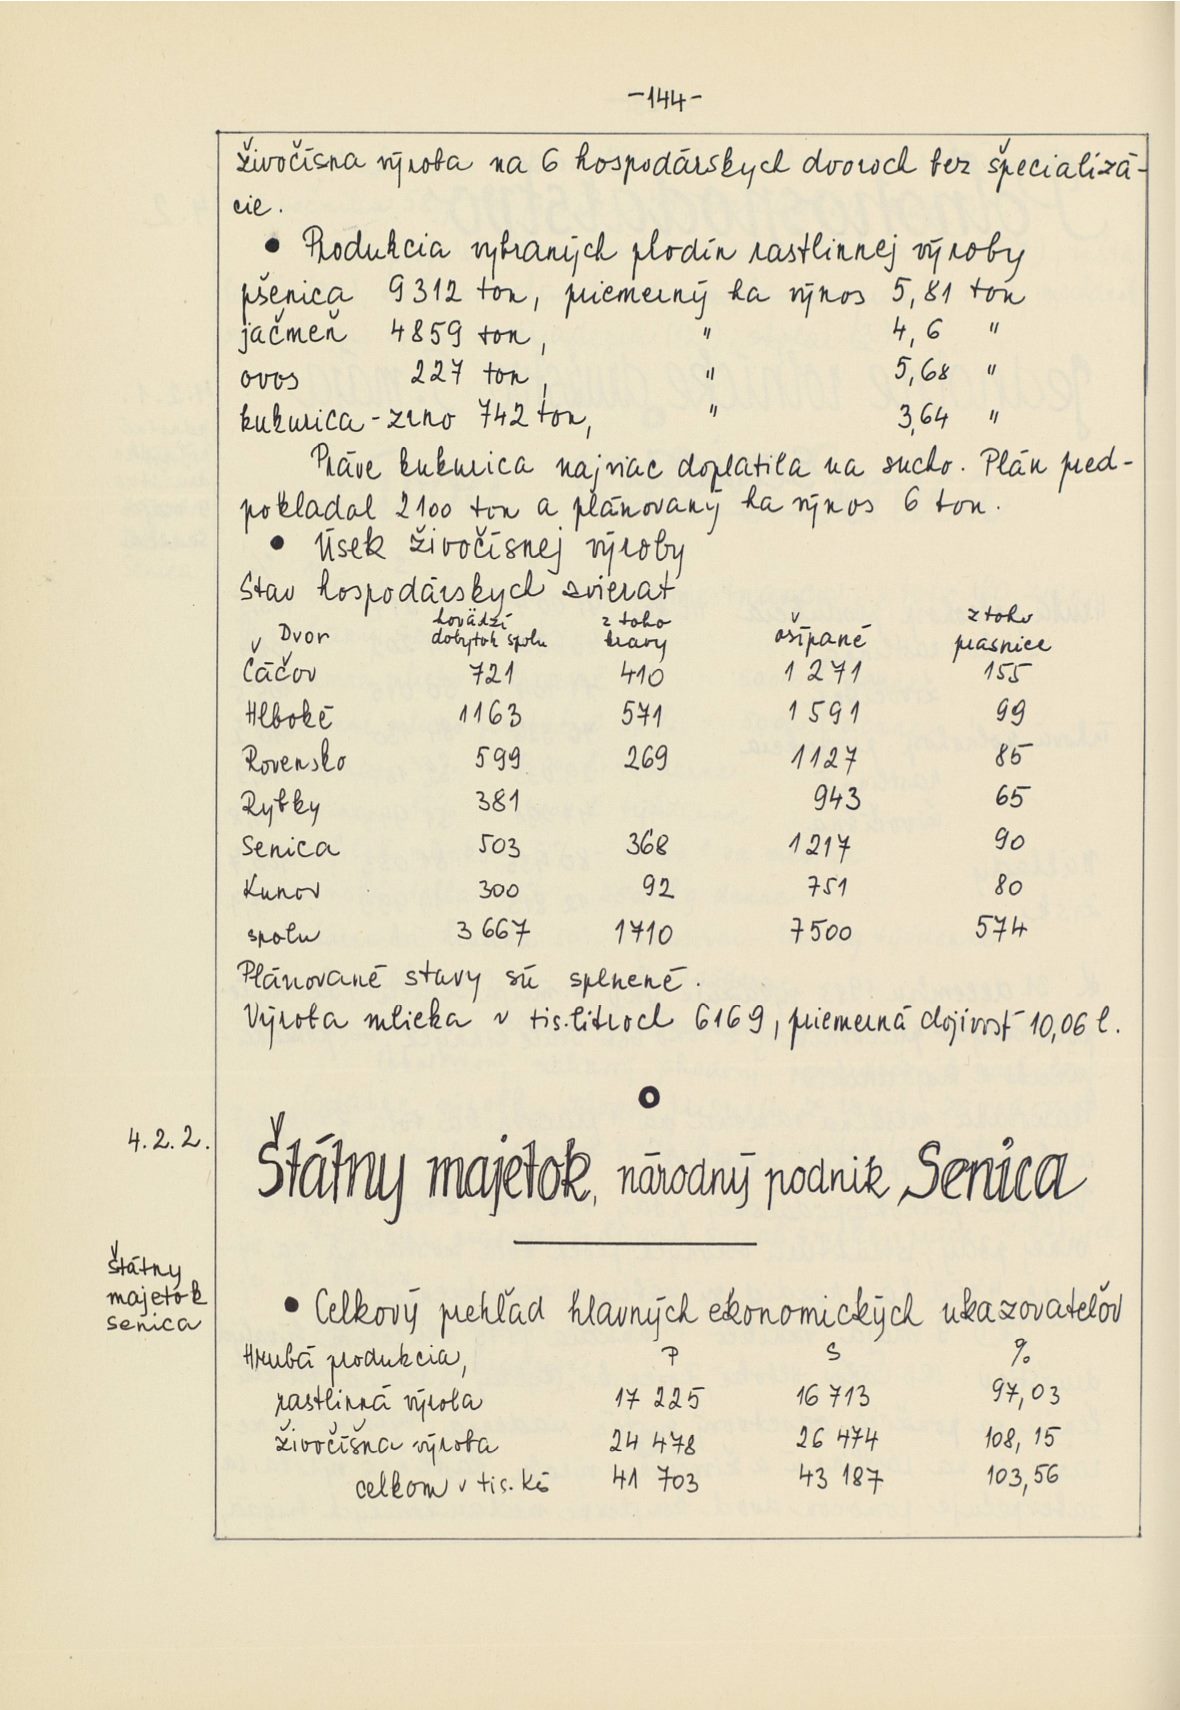 -144-
živočísna výroba na 6 hospodárskych dvoroch bez špecializá-
cie.
• Produkcia vybraných plodín rastlinnej výroby
pšenica 9312 ton, priemerný ha výnos 5,81 ton
jačmeň 4859 ton, " 4,6 "
ovos 227 ton, " 5,68 "
kukurica-zrno 742 ton, " 3,64 "
Práve kukurica najviac doplatila na sucho. Plán pred-
pokladal 2100 ton a plánovaný ha výnos 6 ton.
• Úsek živočísnej výroby
Stav hospodárskych zvierat
Dvor hovädzí dobytok spolu z toho kravy ošípané z toho prasnice
Čáčov 721 410 1 271 155
Hlboké 1163 571 1 591 99
Rovensko 599 269 1127 85
Rybky 381 943 65
Senica 503 368 1217 90
Kunov 300 92 751 80
spolu 3 667 1710 7500 574
Plánované stavy sú splnené.
Výroba mlieka v tis.litroch 6169, priemerná dojivosť 10,06 l.
4.2.2.
Štátny majetok, národný podnik Senica
Štátny
majetok
Senica
• Celkový prehľad hlavných ekonomických ukazovateľov
Hrubá produkcia, P S %
rastlinná výroba 17 225 16 713 97,03
živočíšna výroba 24 478 26 474 108,15
celkom v tis. Kčs 41 703 43 187 103,56